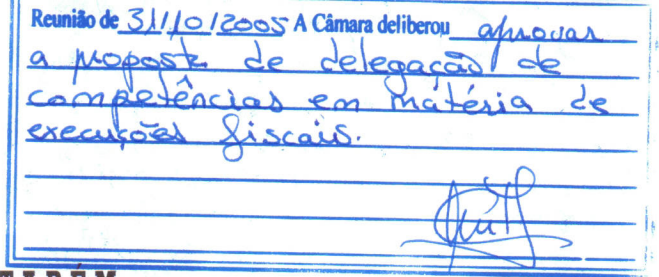 Reunião de 31/10/2005 A Câmara deliberou aprovar
a proposta de delegação de
competências em matéria de
execuções fiscais.